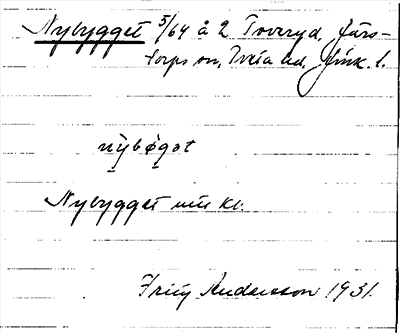 Nybygget 5/64 å 2 Toveryd, Järs-
torps sn, Tveta hd, Jönk. l.
nybøgət
Nybygget
Fritz Andersson 1931.